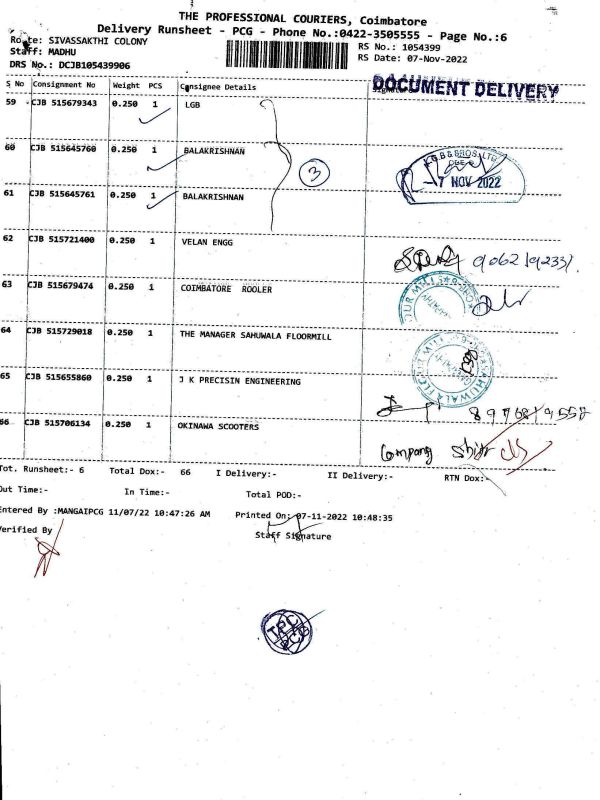 THE PROFESSIONAL COURIERS, Coimbatore
Delivery Runsheet - PCG - Phone No.:0422-3505555 - Page No.:6
Route: SIVASSAKTHI COLONY
RS No.: 1054399
Staff: MADHU
RS Date: 07-Nov-2022
DRS No.: DCJB105439906
S No Consignment No Weight PCS Consignee Details
DOCUMENT DELIVERY
59 CJB 515679343 0.250 1 LGB
60 CJB 515645760 0.250 1 BALAKRISHNAN
3
L.G.B & BROS. LTD
-7 NOV 2022
61 CJB 515645761 0.250 1 BALAKRISHNAN
62 CJB 515721400 0.250 1 VELAN ENGG
63 CJB 515679474 0.250 1 COIMBATORE ROOLER
64 CJB 515729018 0.250 1 THE MANAGER SAHUWALA FLOORMILL
65 CJB 515655860 0.250 1 J K PRECISIN ENGINEERING
66 CJB 515706134 0.250 1 OKINAWA SCOOTERS
Company
Tot. Runsheet:- 6 Total Dox:- 66 I Delivery:- II Delivery:- RTN Dox:-
Out Time:- In Time:- Total POD:-
Entered By :MANGAIPCG 11/07/22 10:47:26 AM Printed On: 07-11-2022 10:48:35
Verified By
Staff Signature
TPC
PCG